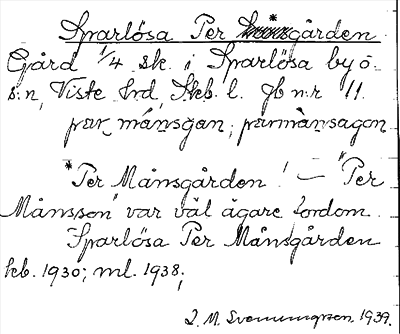 Sparlösa Per *gården
Gård 1/4 sk. i Sparlösa by o.
s:n, Viste hrd, Skb. l. Jb nr 11.
*"Per Månsgården! — "Per
Månsson" var väl ägare fordom.
Sparlösa Per Månsgården
kb. 1930; ml. 1938;
1939.